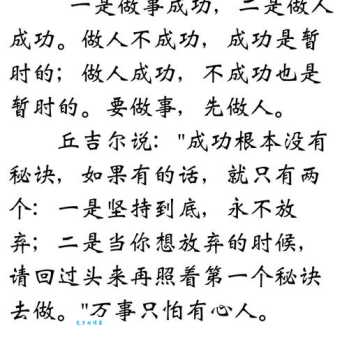 一是做事成功，二是做人
成功。做人不成功，成功是暂
时的；做人成功，不成功也是
暂时的。要做事，先做人。
丘吉尔说："成功根本没有
秘诀，如果有的话，就只有两
个：一是坚持到底，永不放
弃；二是当你想放弃的时候，
请回过头来再照着第一个秘诀
去做。"万事只怕有心人。